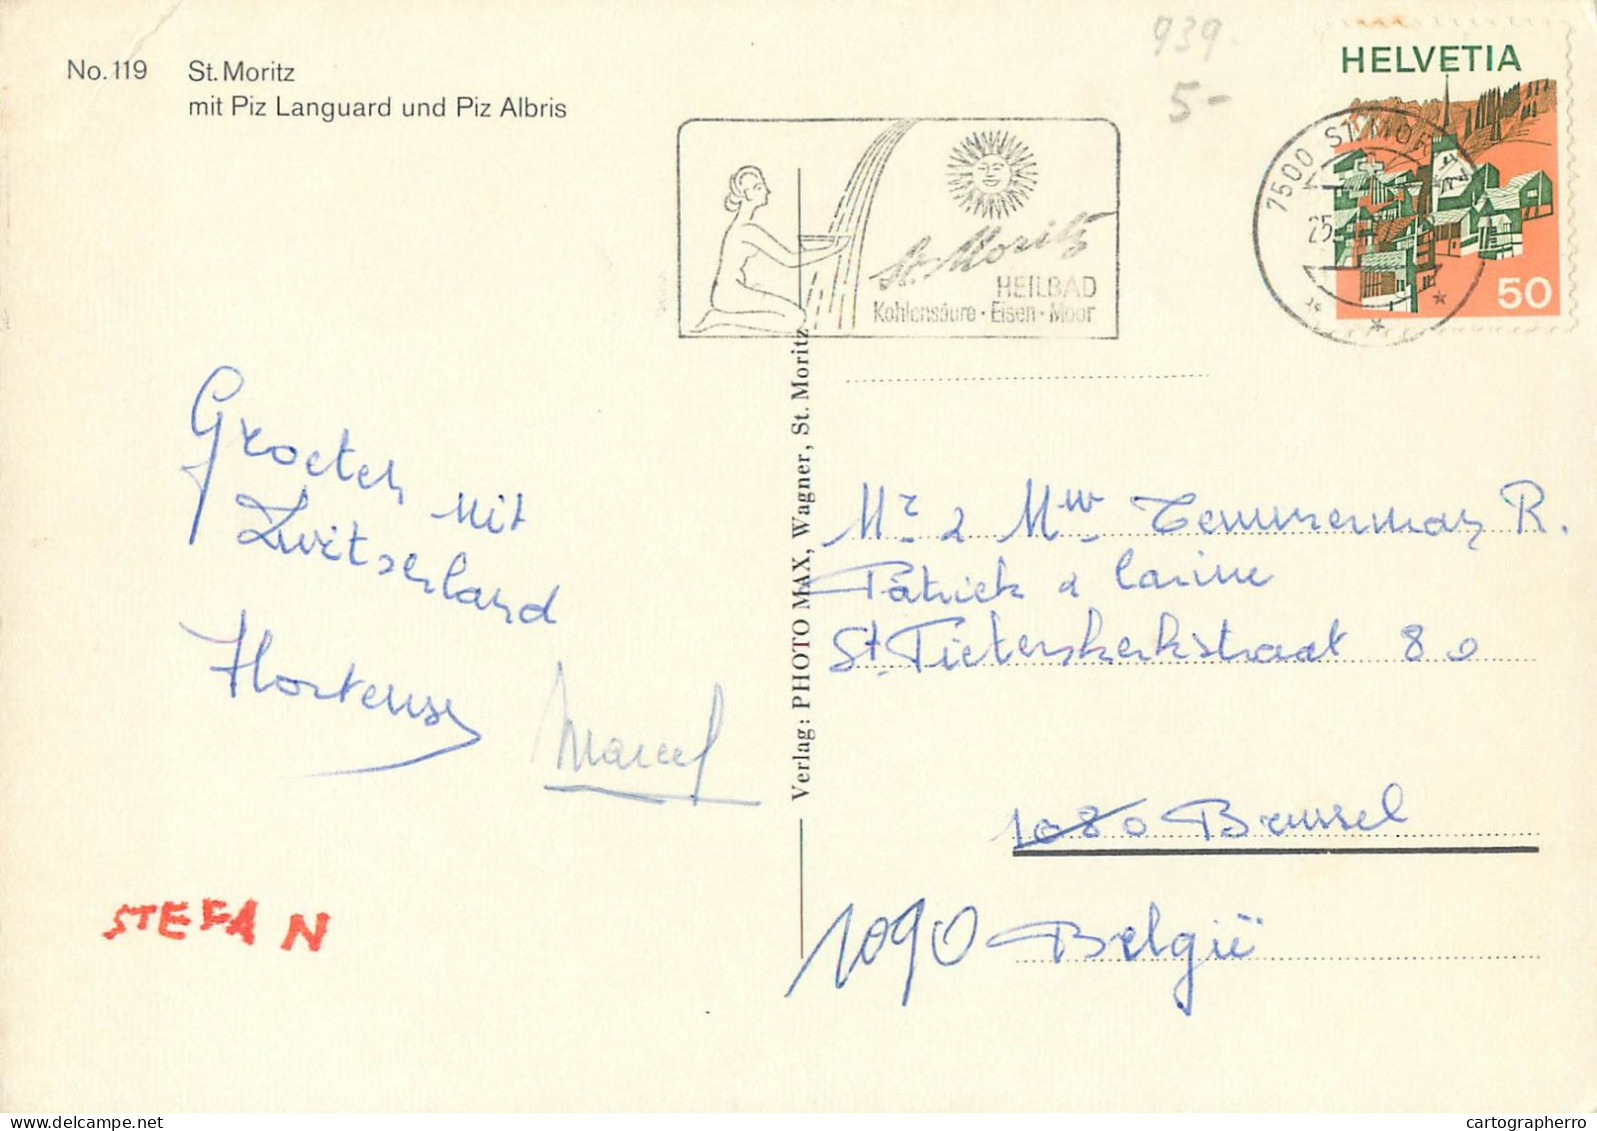 No. 119 St. Moritz
mit Piz Languard und Piz Albris
939.
5-
HELVETIA
50
7500 ST. MORITZ
25.
St. Moritz
HEILBAD
Kohlensäure · Eisen · Moor
Groeten uit
Zwitserland
Hortense
Marcel
STEFAN
Verlag: PHOTO MAX, Wagner, St. Moritz
Mr & Mw Temmerman R.
Patrick & Carine
St Pieterskerkstraat 80
1080 Brussel
1090 België
cartographerro